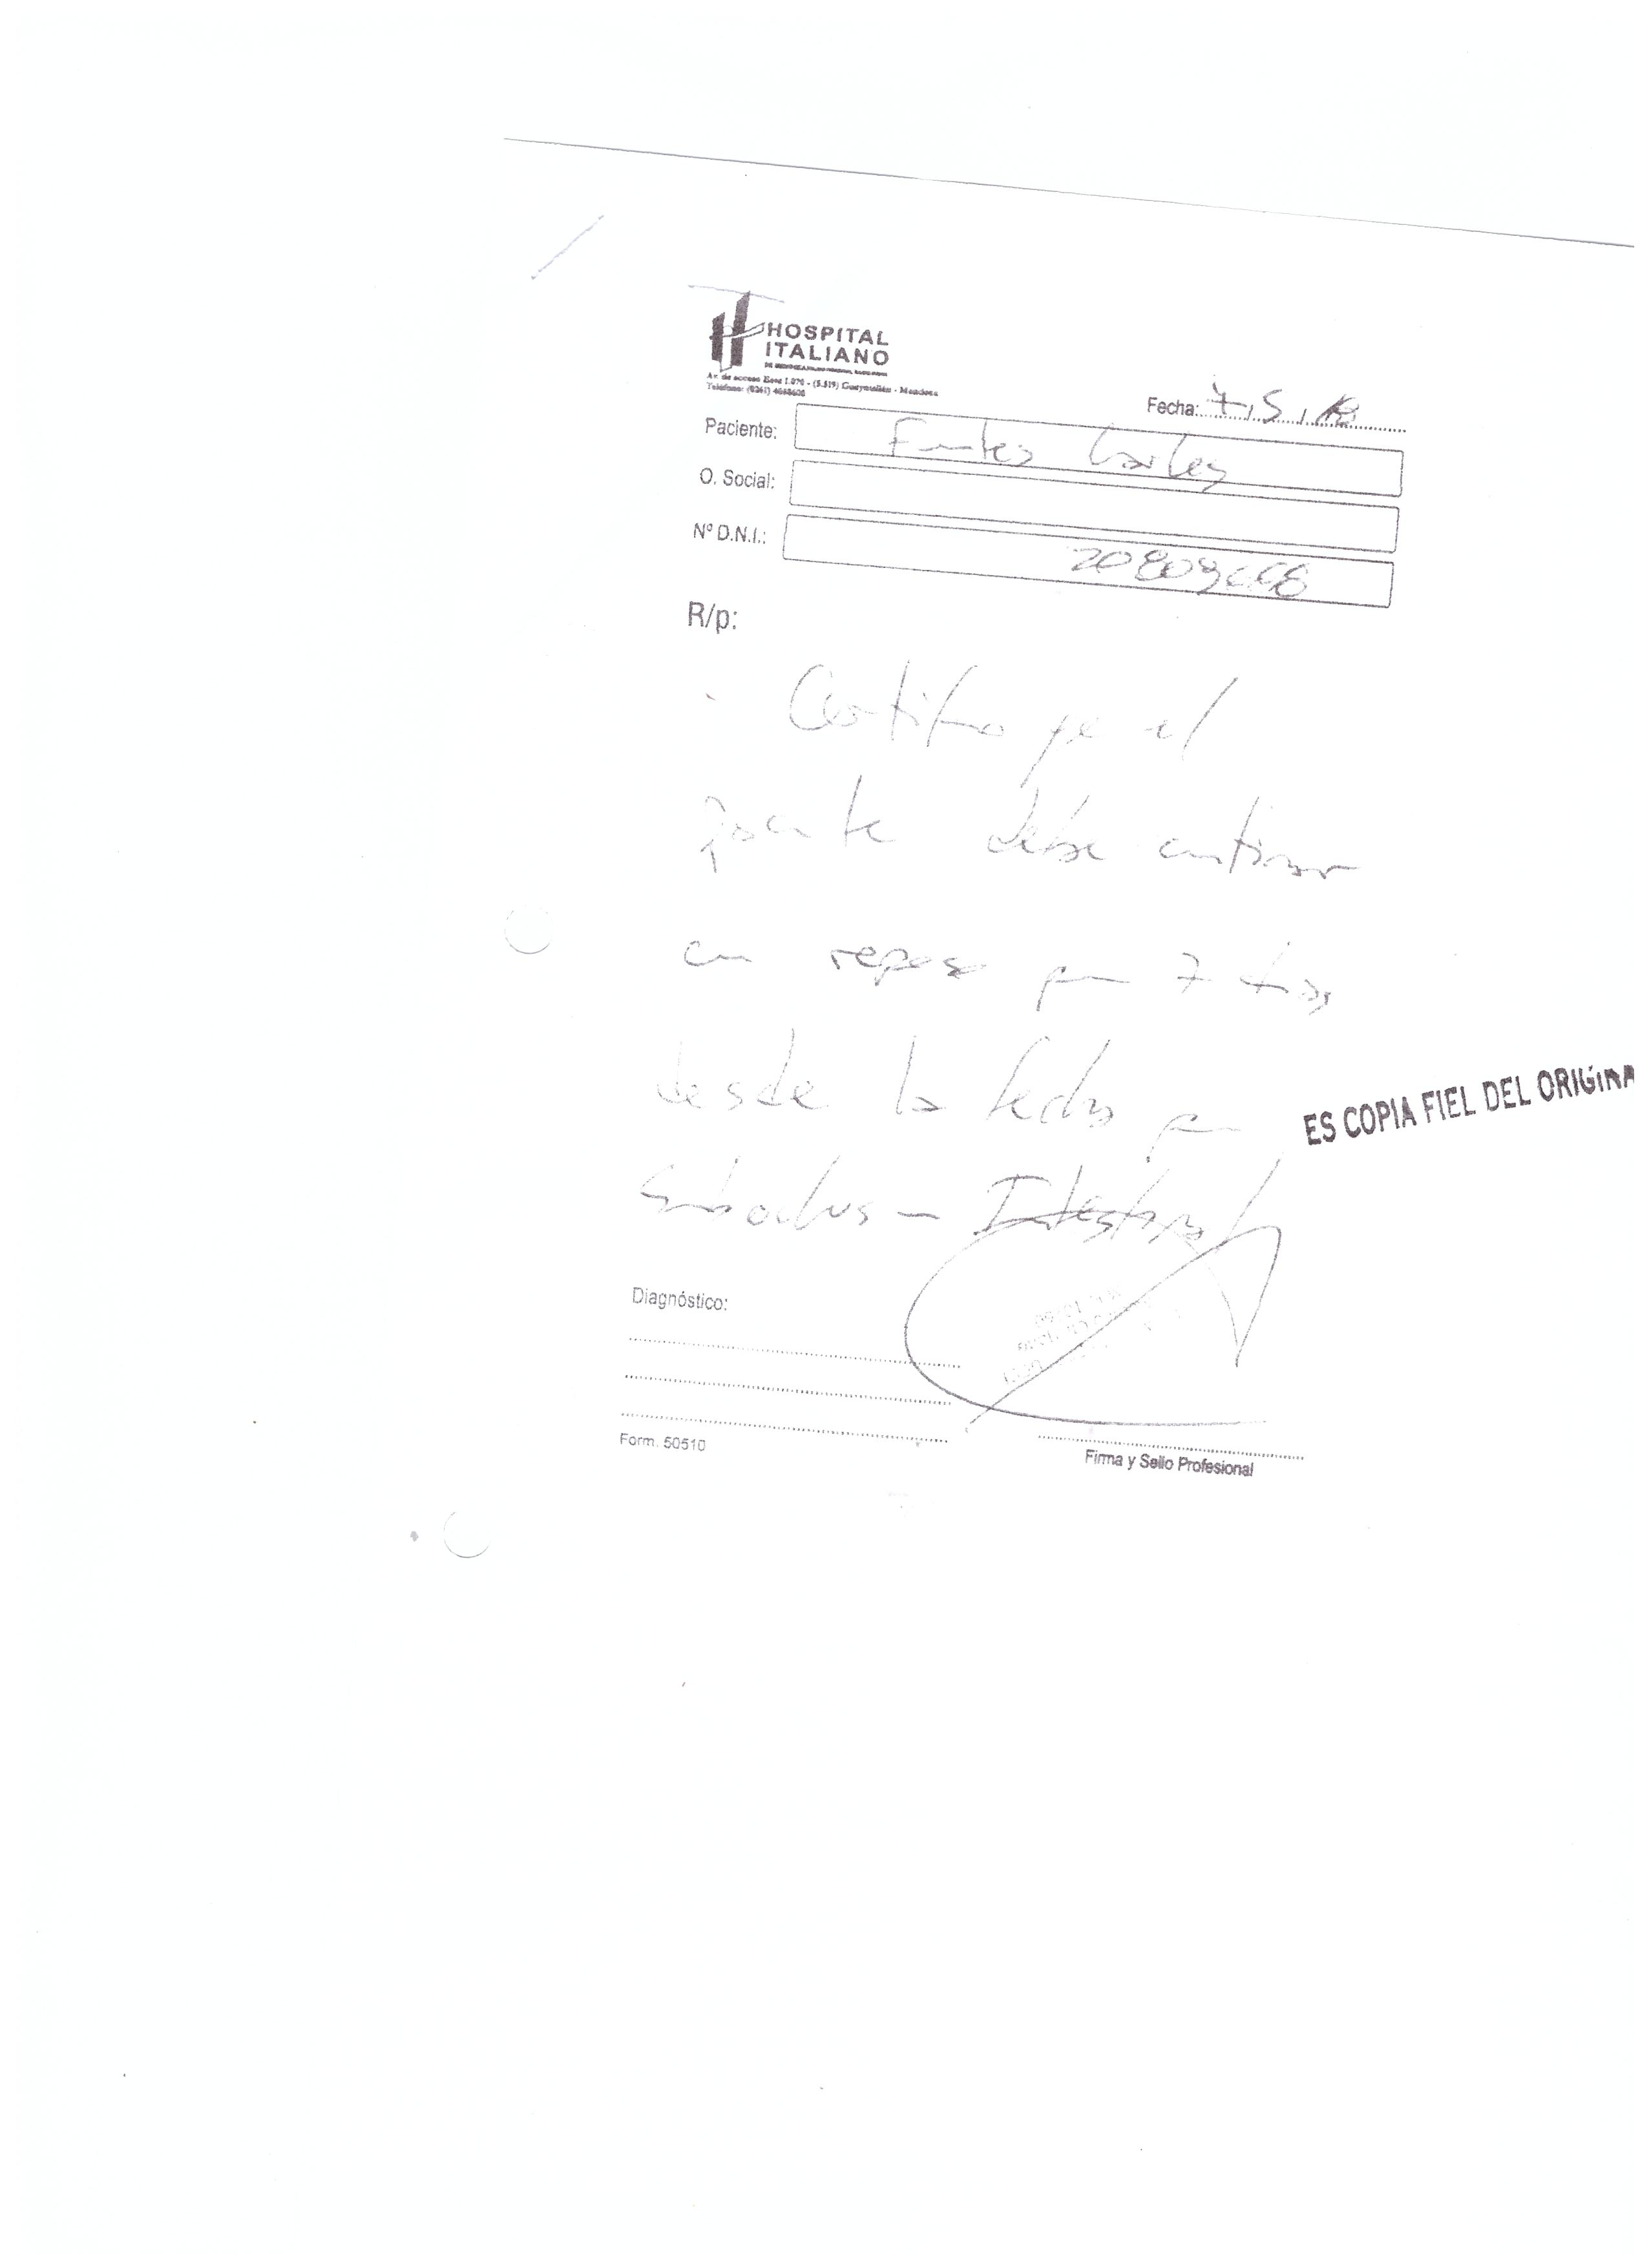 HOSPITAL
ITALIANO
Av. de acceso Este 1.070 - (5.519) Guaymallén - Mendoza
Teléfono: (0261)
Fecha: 7, 5,
Paciente: Fuentes Carlos
O. Social:
Nº D.N.I.: 20809668
R/p:
- Certifico que el
paciente debe continuar
en reposo por 7 días
desde la fecha por
Intestinal
ES COPIA FIEL DEL ORIGINA
Diagnóstico:
Form. 50510
Firma y Sello Profesional